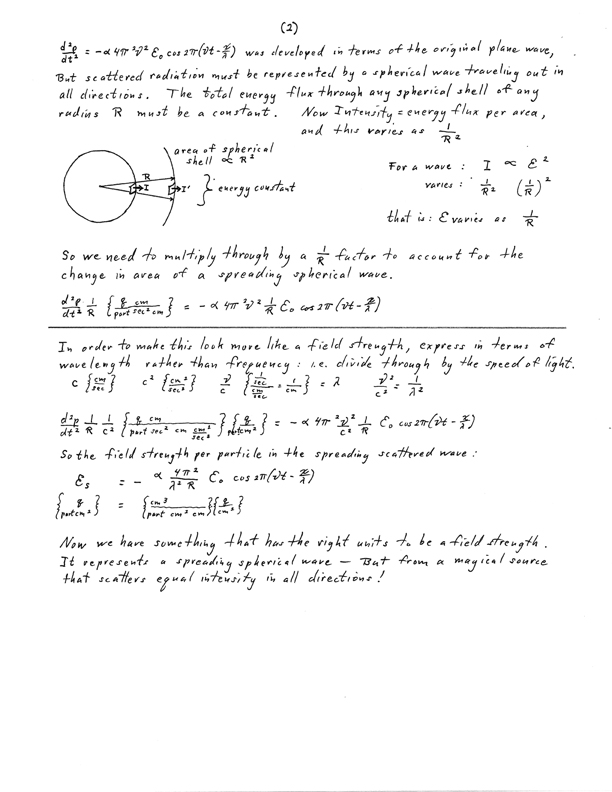 (2)
d²p/dt² = -α 4π²ν² Ɛ₀ cos 2π(νt - x/λ) was developed in terms of the original plane wave,
But scattered radiation must be represented by a spherical wave traveling out in
all directions. The total energy flux through any spherical shell of any
radius R must be a constant. Now Intensity = energy flux per area,
and this varies as 1/R²
area of spherical
shell ∝ R²
R
I
I'
} energy constant
For a wave : I ∝ Ɛ²
varies : 1/R² (1/R)²
that is : Ɛ varies as 1/R
So we need to multiply through by a 1/R factor to account for the
change in area of a spreading spherical wave.
d²p/dt² 1/R {q cm / part sec² cm} = -α 4π²ν² 1/R Ɛ₀ cos 2π(νt - x/λ)
In order to make this look more like a field strength, express in terms of
wavelength rather than frequency : i.e. divide through by the speed of light.
c {cm/sec} c² {cm²/sec²} ν/c {1/sec / cm/sec = 1/cm} = λ ν²/c² = 1/λ²
d²p/dt² 1/R 1/c² {q cm / part sec² cm cm²/sec²} {q / part cm²} = -α 4π² ν²/c² 1/R Ɛ₀ cos 2π(νt - x/λ)
So the field strength per particle in the spreading scattered wave :
Ɛs = - α 4π²/λ²R Ɛ₀ cos 2π(νt - x/λ)
{q / part cm²} = {cm³ / part cm² cm} {q / cm²}
Now we have something that has the right units to be a field strength.
It represents a spreading spherical wave — But from a magical source
that scatters equal intensity in all directions!